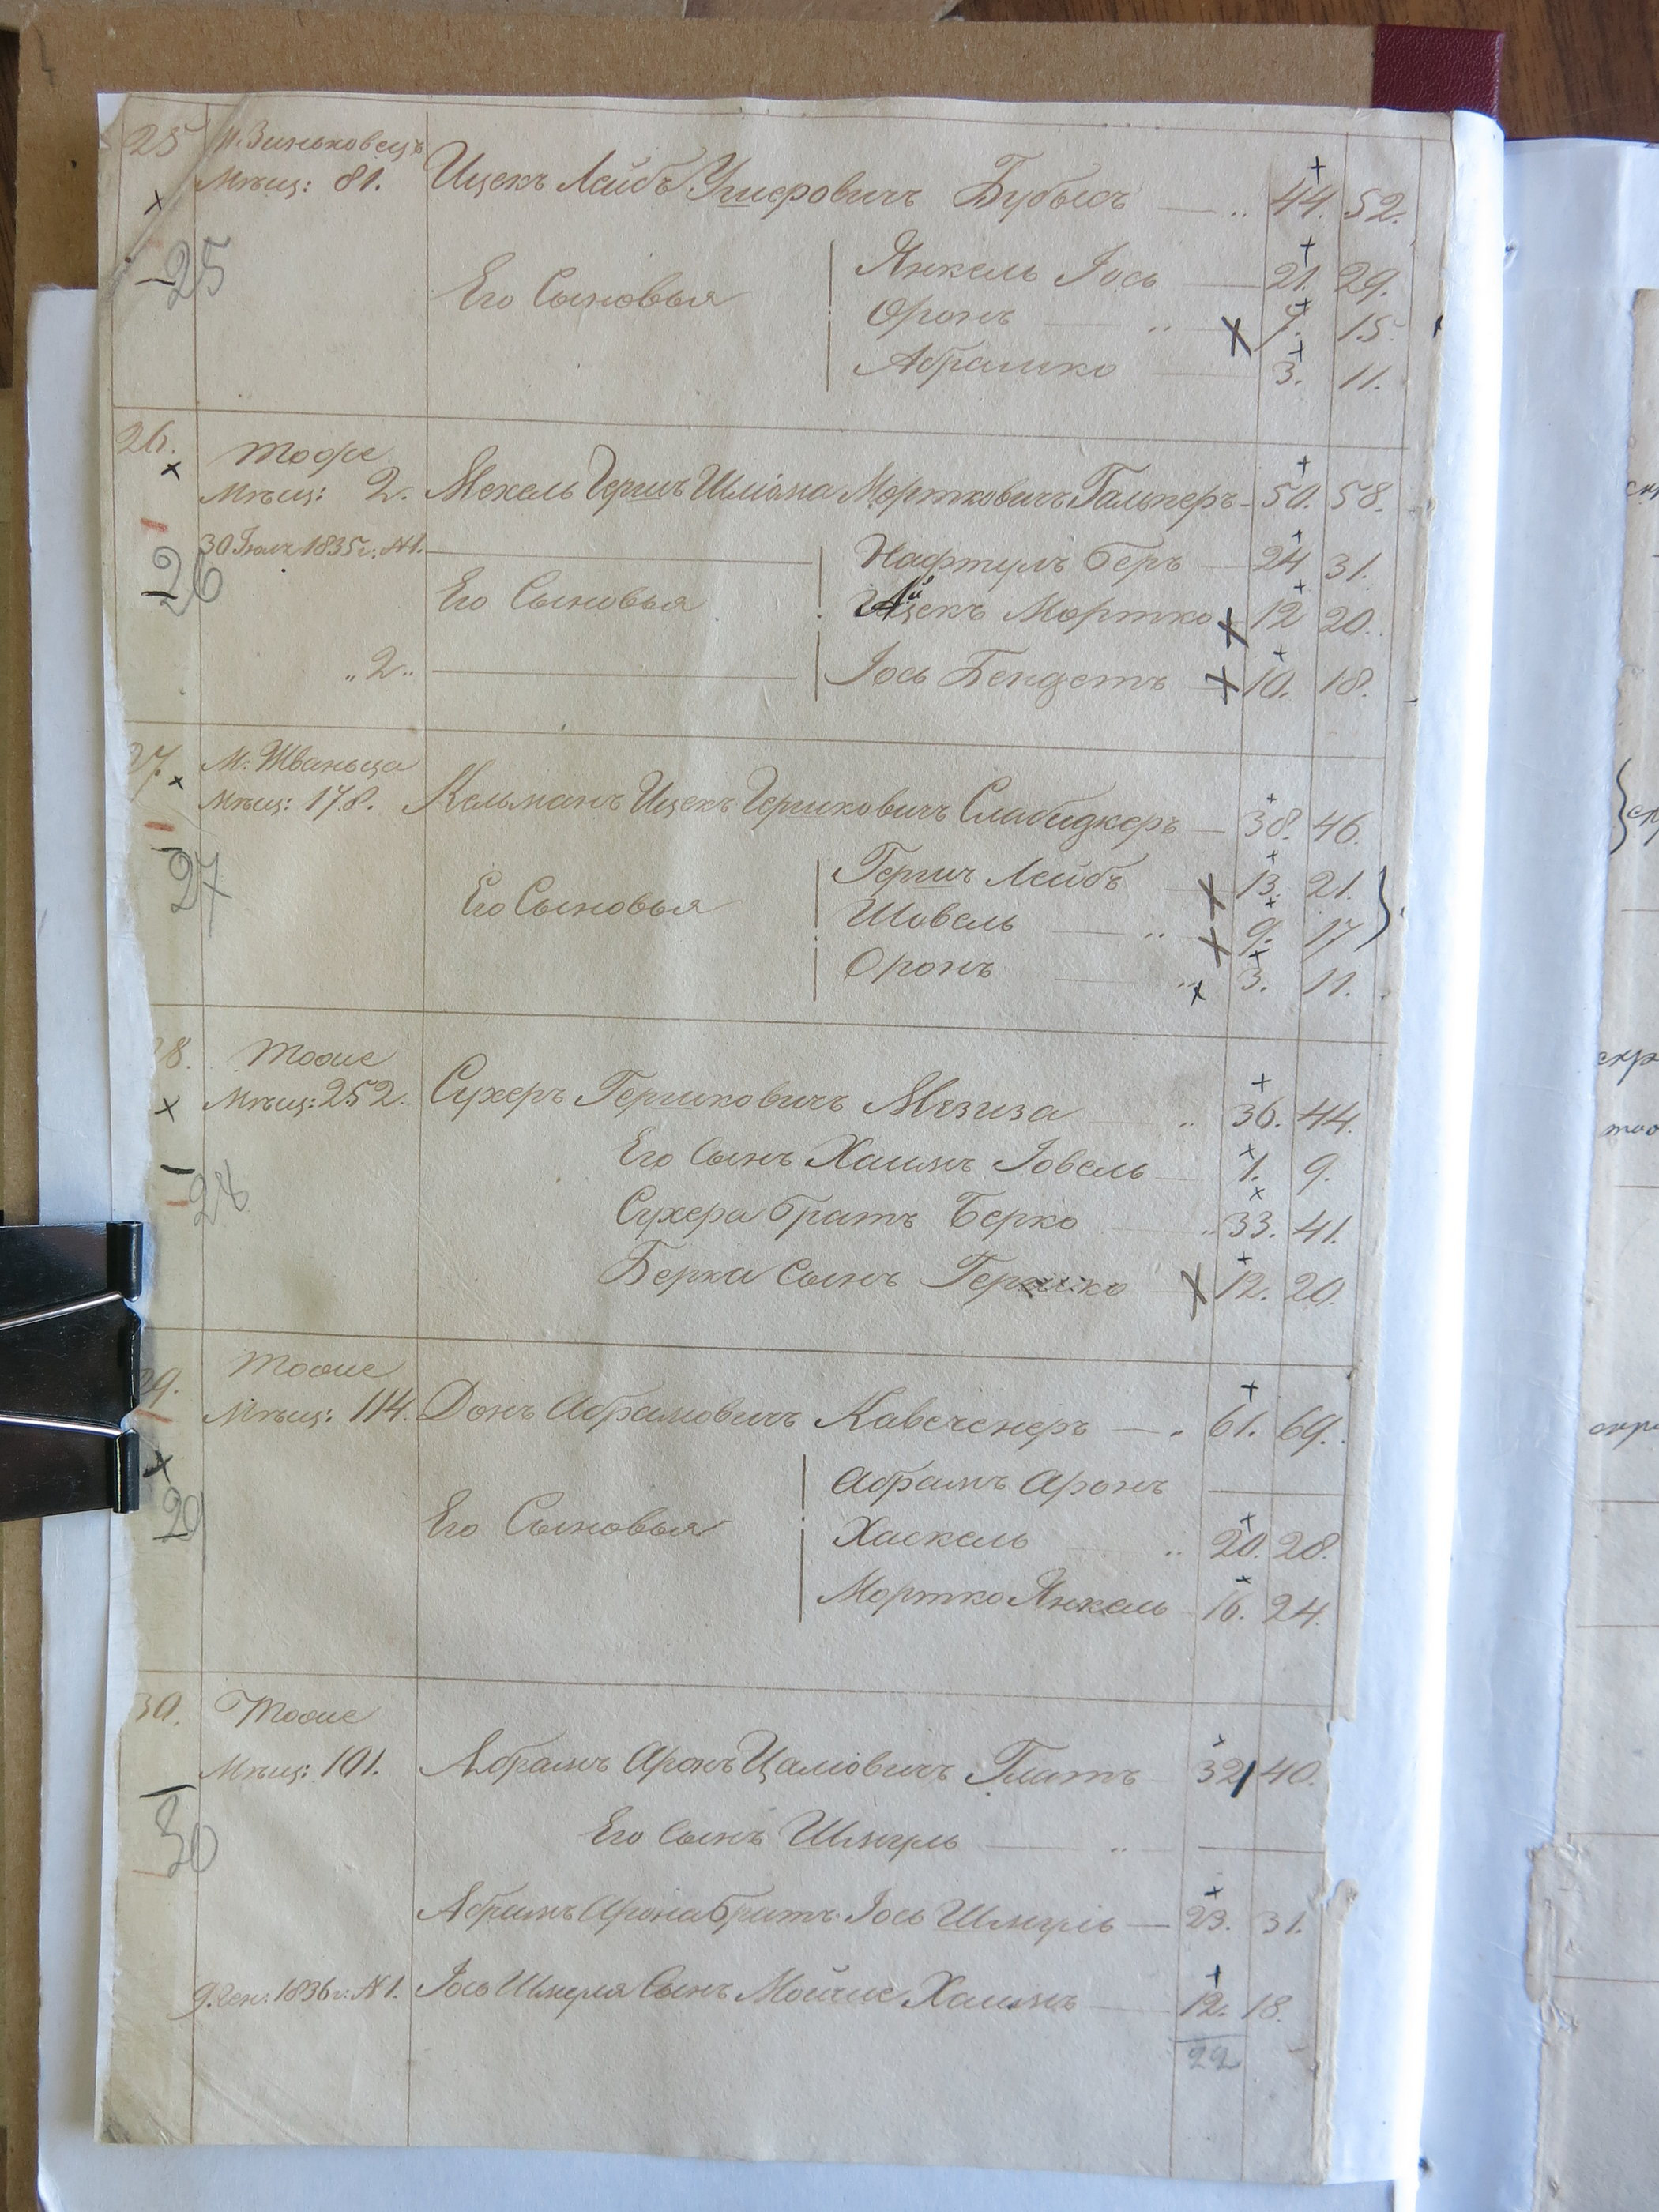 25 М. Зиньковецъ
Мѣщ: 81. Ицекъ Лейбъ Ушеровичъ Бубысъ 44. 52.
25
Его Сыновья
Янкель Іось 21. 29.
Оронъ 7. 15.
Абрамко 3. 11.
26. тоже
Мѣщ: 2. Мехель Гершъ Шліома Мортковичъ Гальперъ 50. 58.
30 1835г: №1. Нафтулъ Беръ 24 31.
26
Его Сыновья Ицекъ Мортко 12 20.
"2" Іось Бендетъ 10. 18.
27. М. Жваньца
Мѣщ: 178. Кельманъ Ицекъ Гершковичъ Слабидкеръ 38. 46.
27
Его Сыновья
Гершъ Лейбъ 13. 21.
Шовель 9. 17
Оронъ 3. 11.
28. тоже
Мѣщ: 252. Сухеръ Гершковичъ Мезиза 36. 44.
Его Сынъ Хаимъ Іовель 1. 9.
28
Сухера братъ Берко 33. 41.
Берка Сынъ Гершко 12. 20.
29. тоже
Мѣщ: 114. Донъ Абрамовичъ 61. 69.
Абрамъ Аронъ
29
Его Сыновья
Хаскель 20. 28.
Мортко Янкель 16. 24.
30. тоже
Мѣщ: 101. Абрамъ Аронъ Цаліовичъ Глатъ 32 40.
30
Его Сынъ Шмуль
Абрамъ Арона братъ Іось Шмуль 23. 31.
9. Ген: 1836г: №1. Іось Шмуля Сынъ Мойше Хаимъ 12. 18.
22